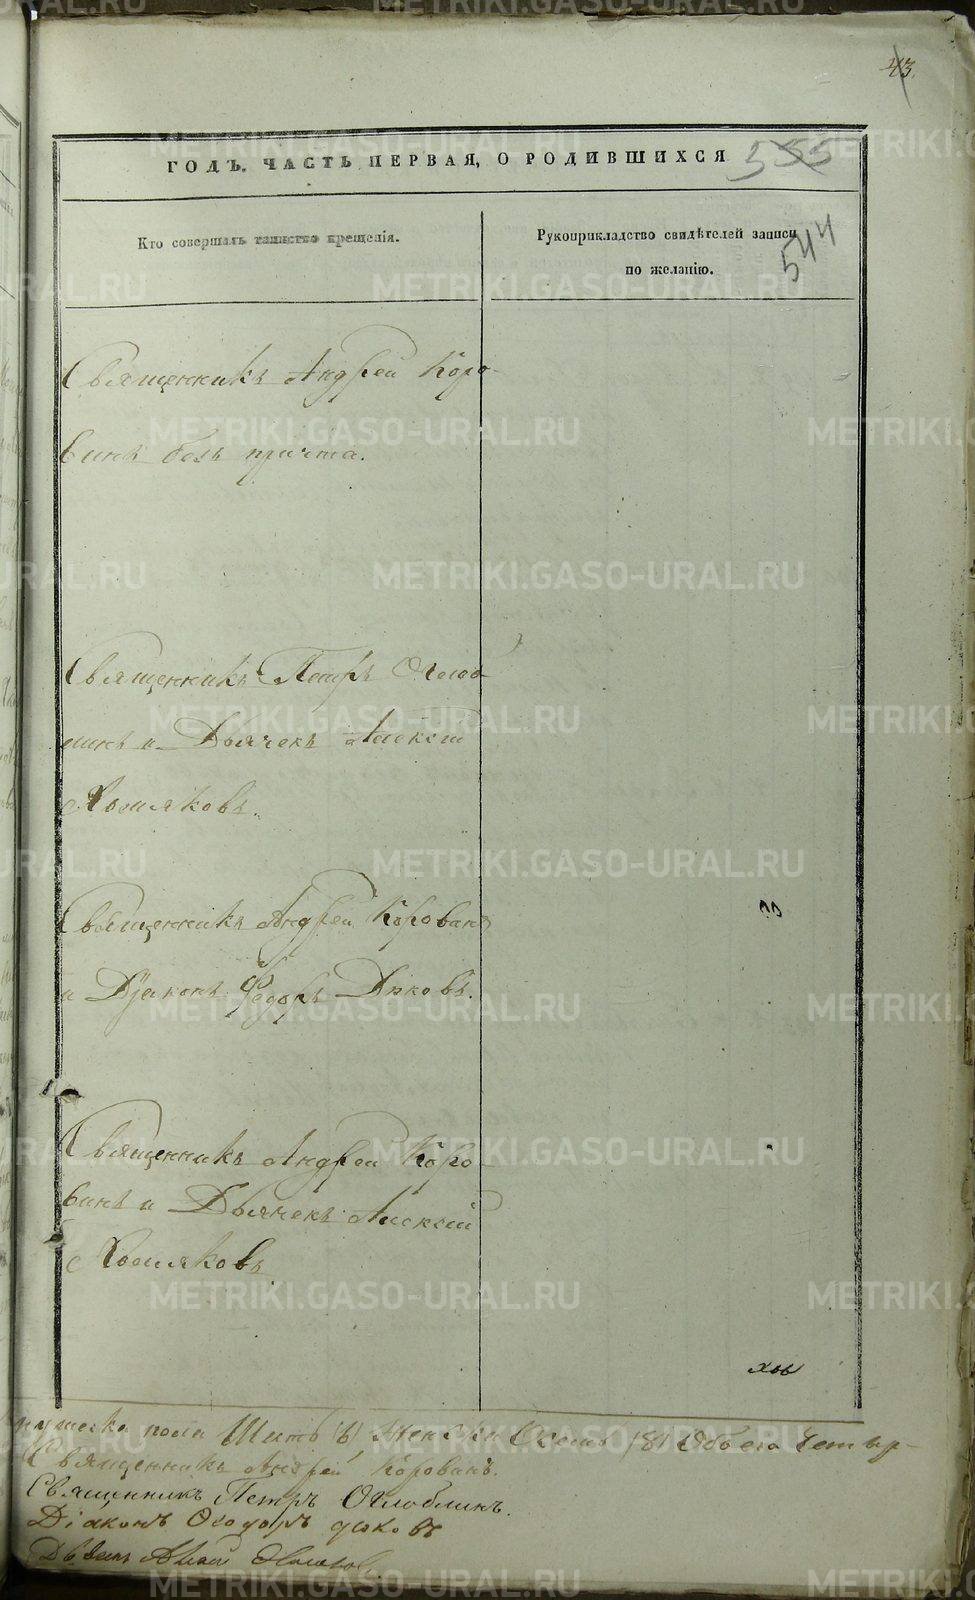 43.
ГОДЪ. ЧАСТЬ ПЕРВАЯ, О РОДИВШИХСЯ
544
Кто совершалъ таинство крещенія.
Рукоприкладство свидѣтелей записи
по желанію.
Священникъ Андрей Коро-
винъ безъ причта.
Священникъ Петръ Оглоб
линъ и Дьячекъ Алексѣй
Хомяковъ.
Священникъ Андрей Коровинъ
и Діаконъ Федоръ Дьковъ.
Священникъ Андрей Коро
винъ и Дьячекъ Алексѣй
Хомяковъ
мужеска пола Шесть (6), Женска Осемь (8) Обоего Четыр-
Священникъ Андрей Коровинъ.
Священникъ Петръ Оглоблинъ.
Діаконъ Ѳеодоръ
METRIKI.GASO-URAL.RU